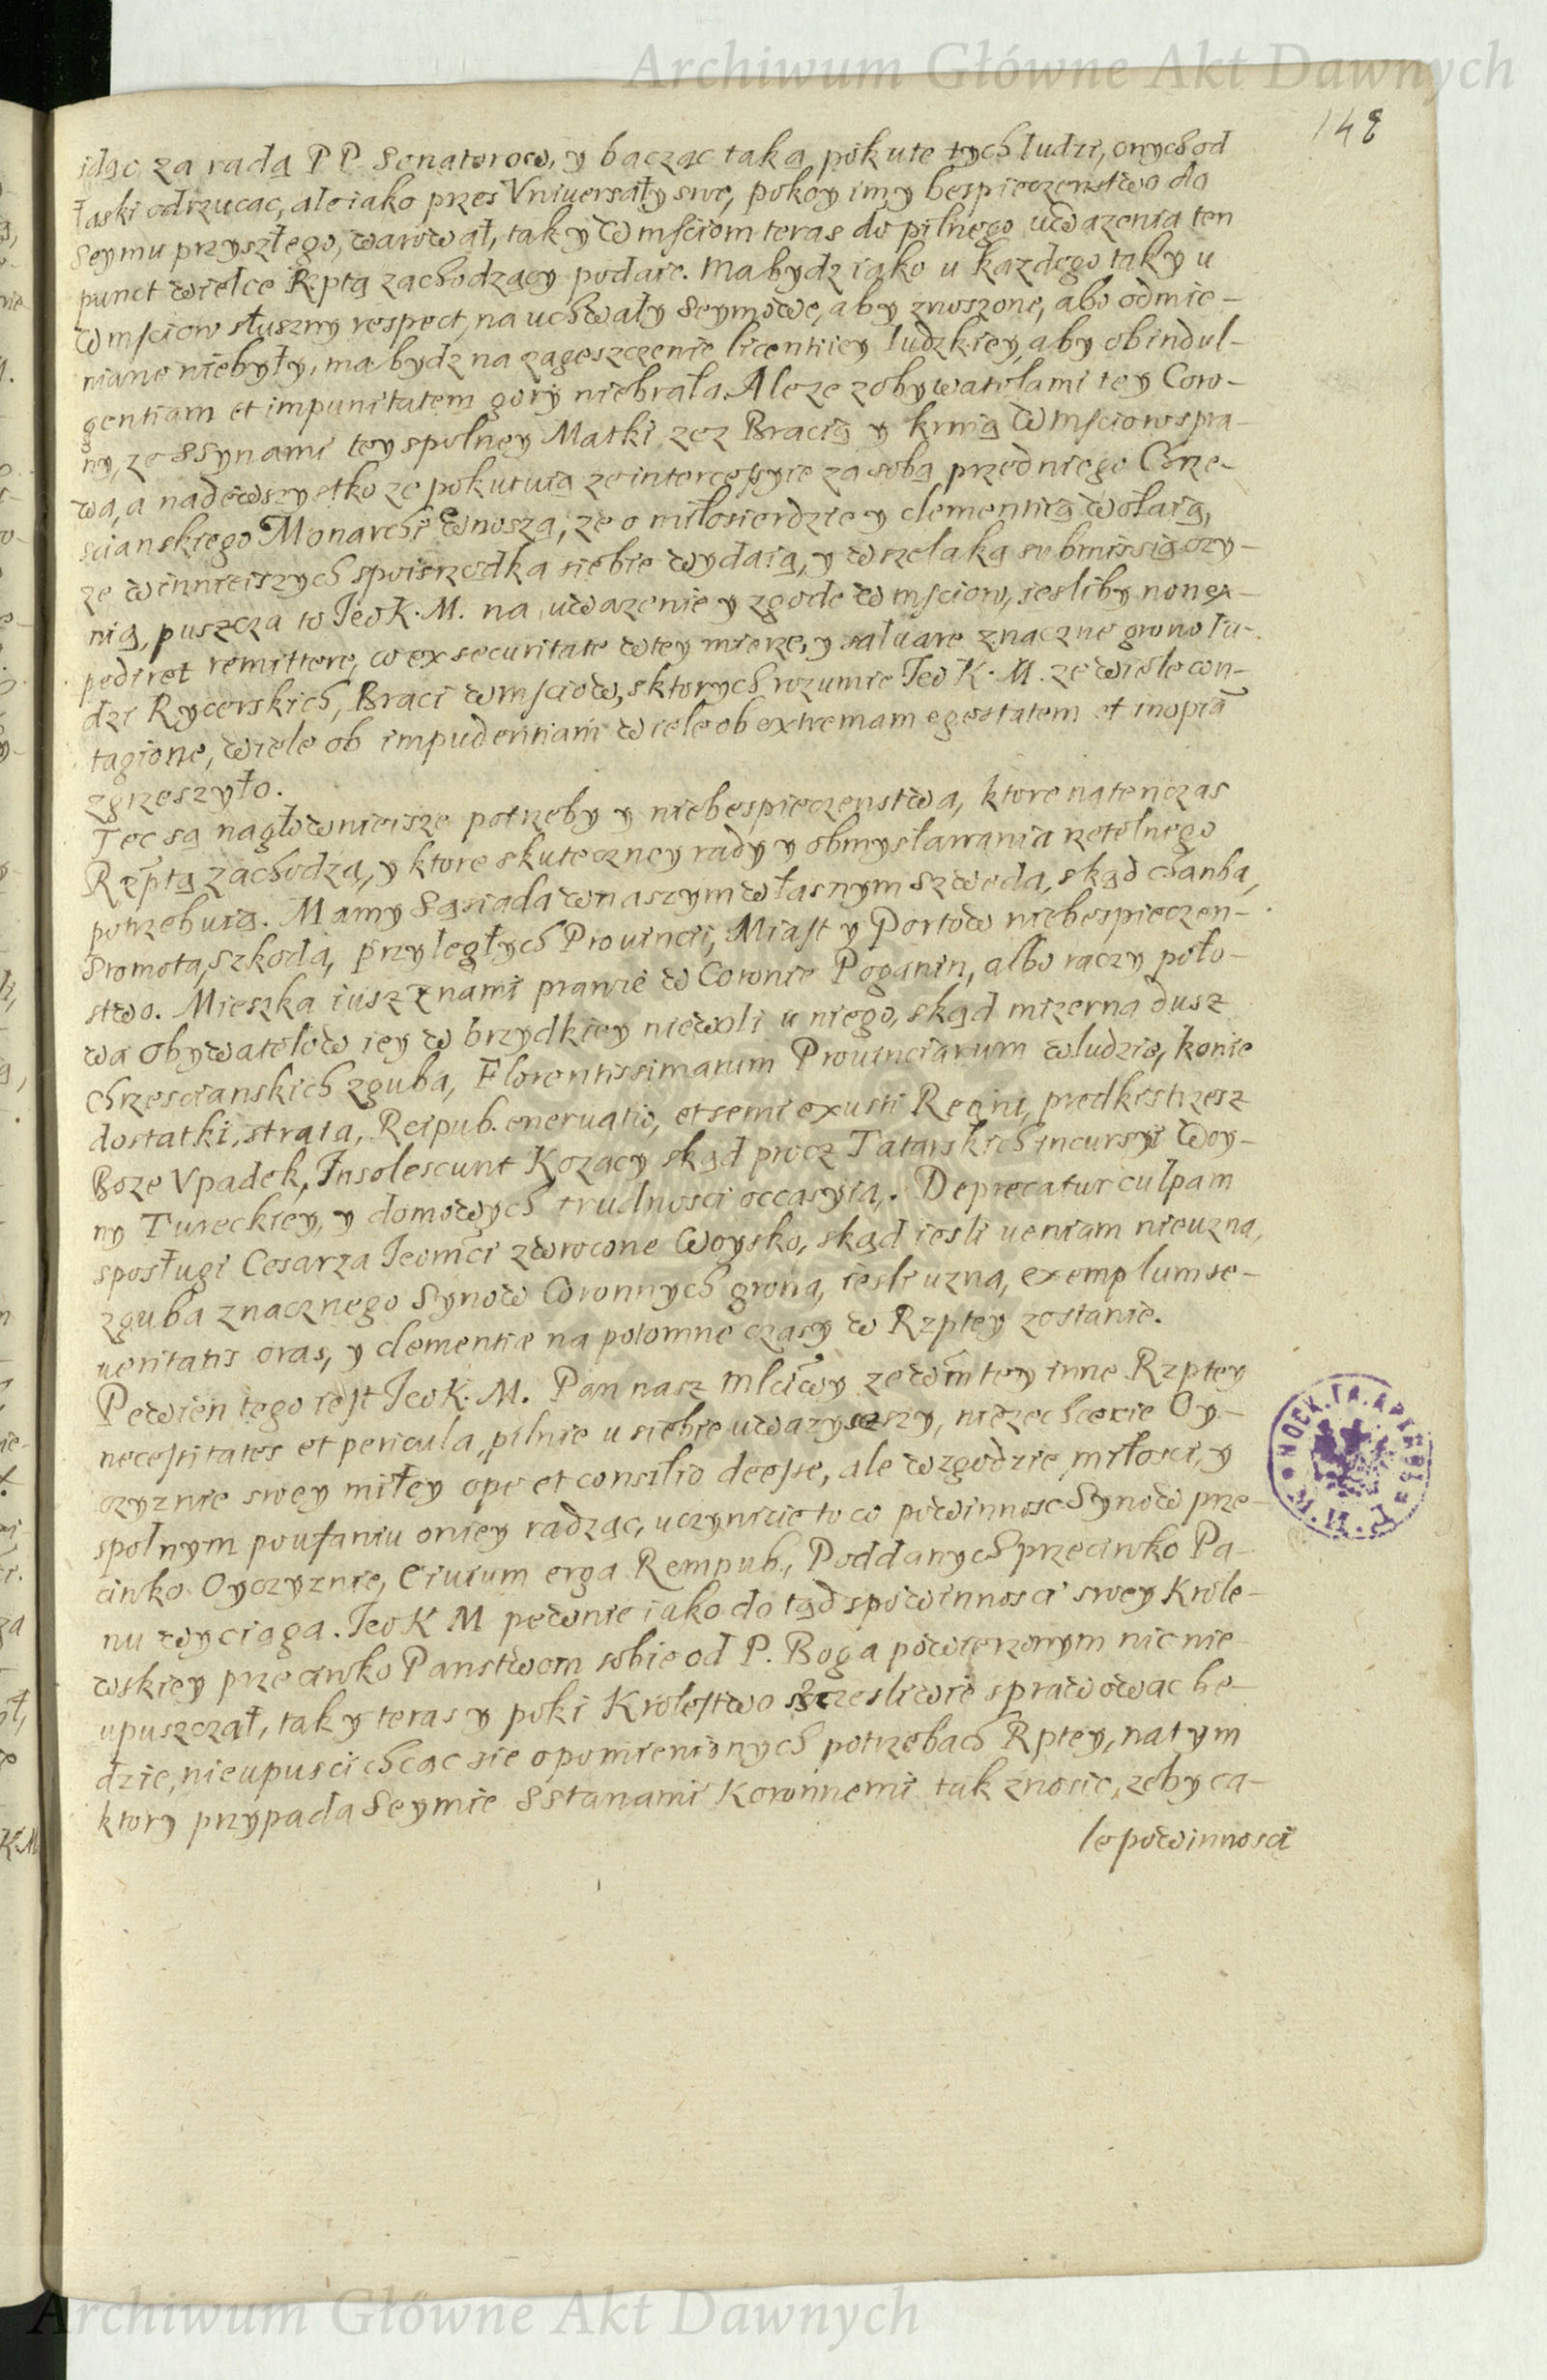 Archiwum Główne Akt Dawnych
148
idąc za radą P P. Senatorow, y bacząc taką pokutę tych ludzi, onych od
łaski odrzucac, ale iako przes Vniuersały swe, pokoy im y bespieczenstwo do
Seymu przyszłego, warował, tak y W mściom teras do pilnego uwazenia ten
punct wielce R.ptą zachodzący podaie. Ma bydz iako u kazdego tak y u
W msciow słuszny respect, na uchwały Seymowe, aby znoszone, abo odmie-
niane niebyły, ma bydz na zagęszczenie licentiiey ludzkiey, aby ob indul-
gentiam et impunitatem gory niebrała. Ale ze z obywatelami tey Coro-
ny, ze S Synami tey spolney Matki, ze z Bracią y krwią W Msciow spra-
wa, a nadewszystko ze pokutuią ze intercessyie za sobą przedniego Chrze-
scianskiego Monarchi wnoszą, ze o miłosierdzie y clementią wołaią,
ze winnieiszych spoisrzodka siebie wydaią, y wszelaką submissią czy-
nią, puszcza to Jeo K. M. na uwazenie y zgode W msciow, iesliby non ex-
pediret remittere, co ex securitate w tey mierze, y saluare znaczne grono lu-
dzi Rycerskich, Braci W msciow, s ktorych rozumie Jeo K. M. ze wiele con-
tagione, wiele ob impudentiam wiele ob extremam egestatem et inopiã
zgrzeszyło.
Tec są nagłownieisze potrzeby y niebespieczenstwa, ktore natenczas
Rzeptą zachodzą, y ktore skuteczney rady y obmyslawania rzetelnego
potrzebuią. Mamy Sąsiada w naszym własnym Szweda, skąd chanba,
Sromota, szkoda, przyległych Prouincii, Miast y Portow niebespieczen-
stwo. Mieszka iusz z nami prawie w Coronie Poganin, albo raczy poło-
wa Obywatelow iey w brzydkiey niewoli u niego, skąd mizerna dusz
chrzescianskich zguba, Florentissimarum Prouinciarum w ludzie, konie
dostatki, strata, Reipub. eneruatio, et semi exusti Regni, prędki strzesz
Boze Vpadek, Insolescunt Kozacy skąd procz Tatarskich incursyi Woy-
ny Tureckiey, y domowych trudnosci occasyia,. Deprecatur culpam
sposługi Cesarza Jeomści zwrocone Woysko, skąd iesli ueniam nieuzna,
zguba znacznego Synow Coronnych grona, iesli uzna, exemplum se-
ueritatis oras, y clementiæ na potomne czasy w Rzptey zostanie.
Pewien tego iest Jeo K. M. Pan nasz mlciwy ze W m tey inne Rzptey
necessitates et pericula, pilnie u siebie uwazywszy, niezechcecie Oy-
czyznie swey miłey ope et consilio deesse, ale w zgodzie, miłosci, y
spolnym poufaniu oniey radząc, uczynicie to co powinnosc Synow prze-
ciwko Oyczyznie, Ciuium erga Rempub., Poddanych przeciwko Pa-
nu wyciąga. Jeo K M pewnie iako do tąd s powinnosci swey Krole-
wskiey przeciwko Panstwom sobie od P. Boga powierzonym nic nie
upuszczał, tak y teras y poki Krolestwo szczesliwie sprawowac bę-
dzie, nieupusci chcąc sie o pomienionych potrzebach Rptey, na tym
ktory przypada Seymie S stanami Koronnemi tak znosic, zeby ca-
le powinnosci
Archiwum Główne Akt Dawnych